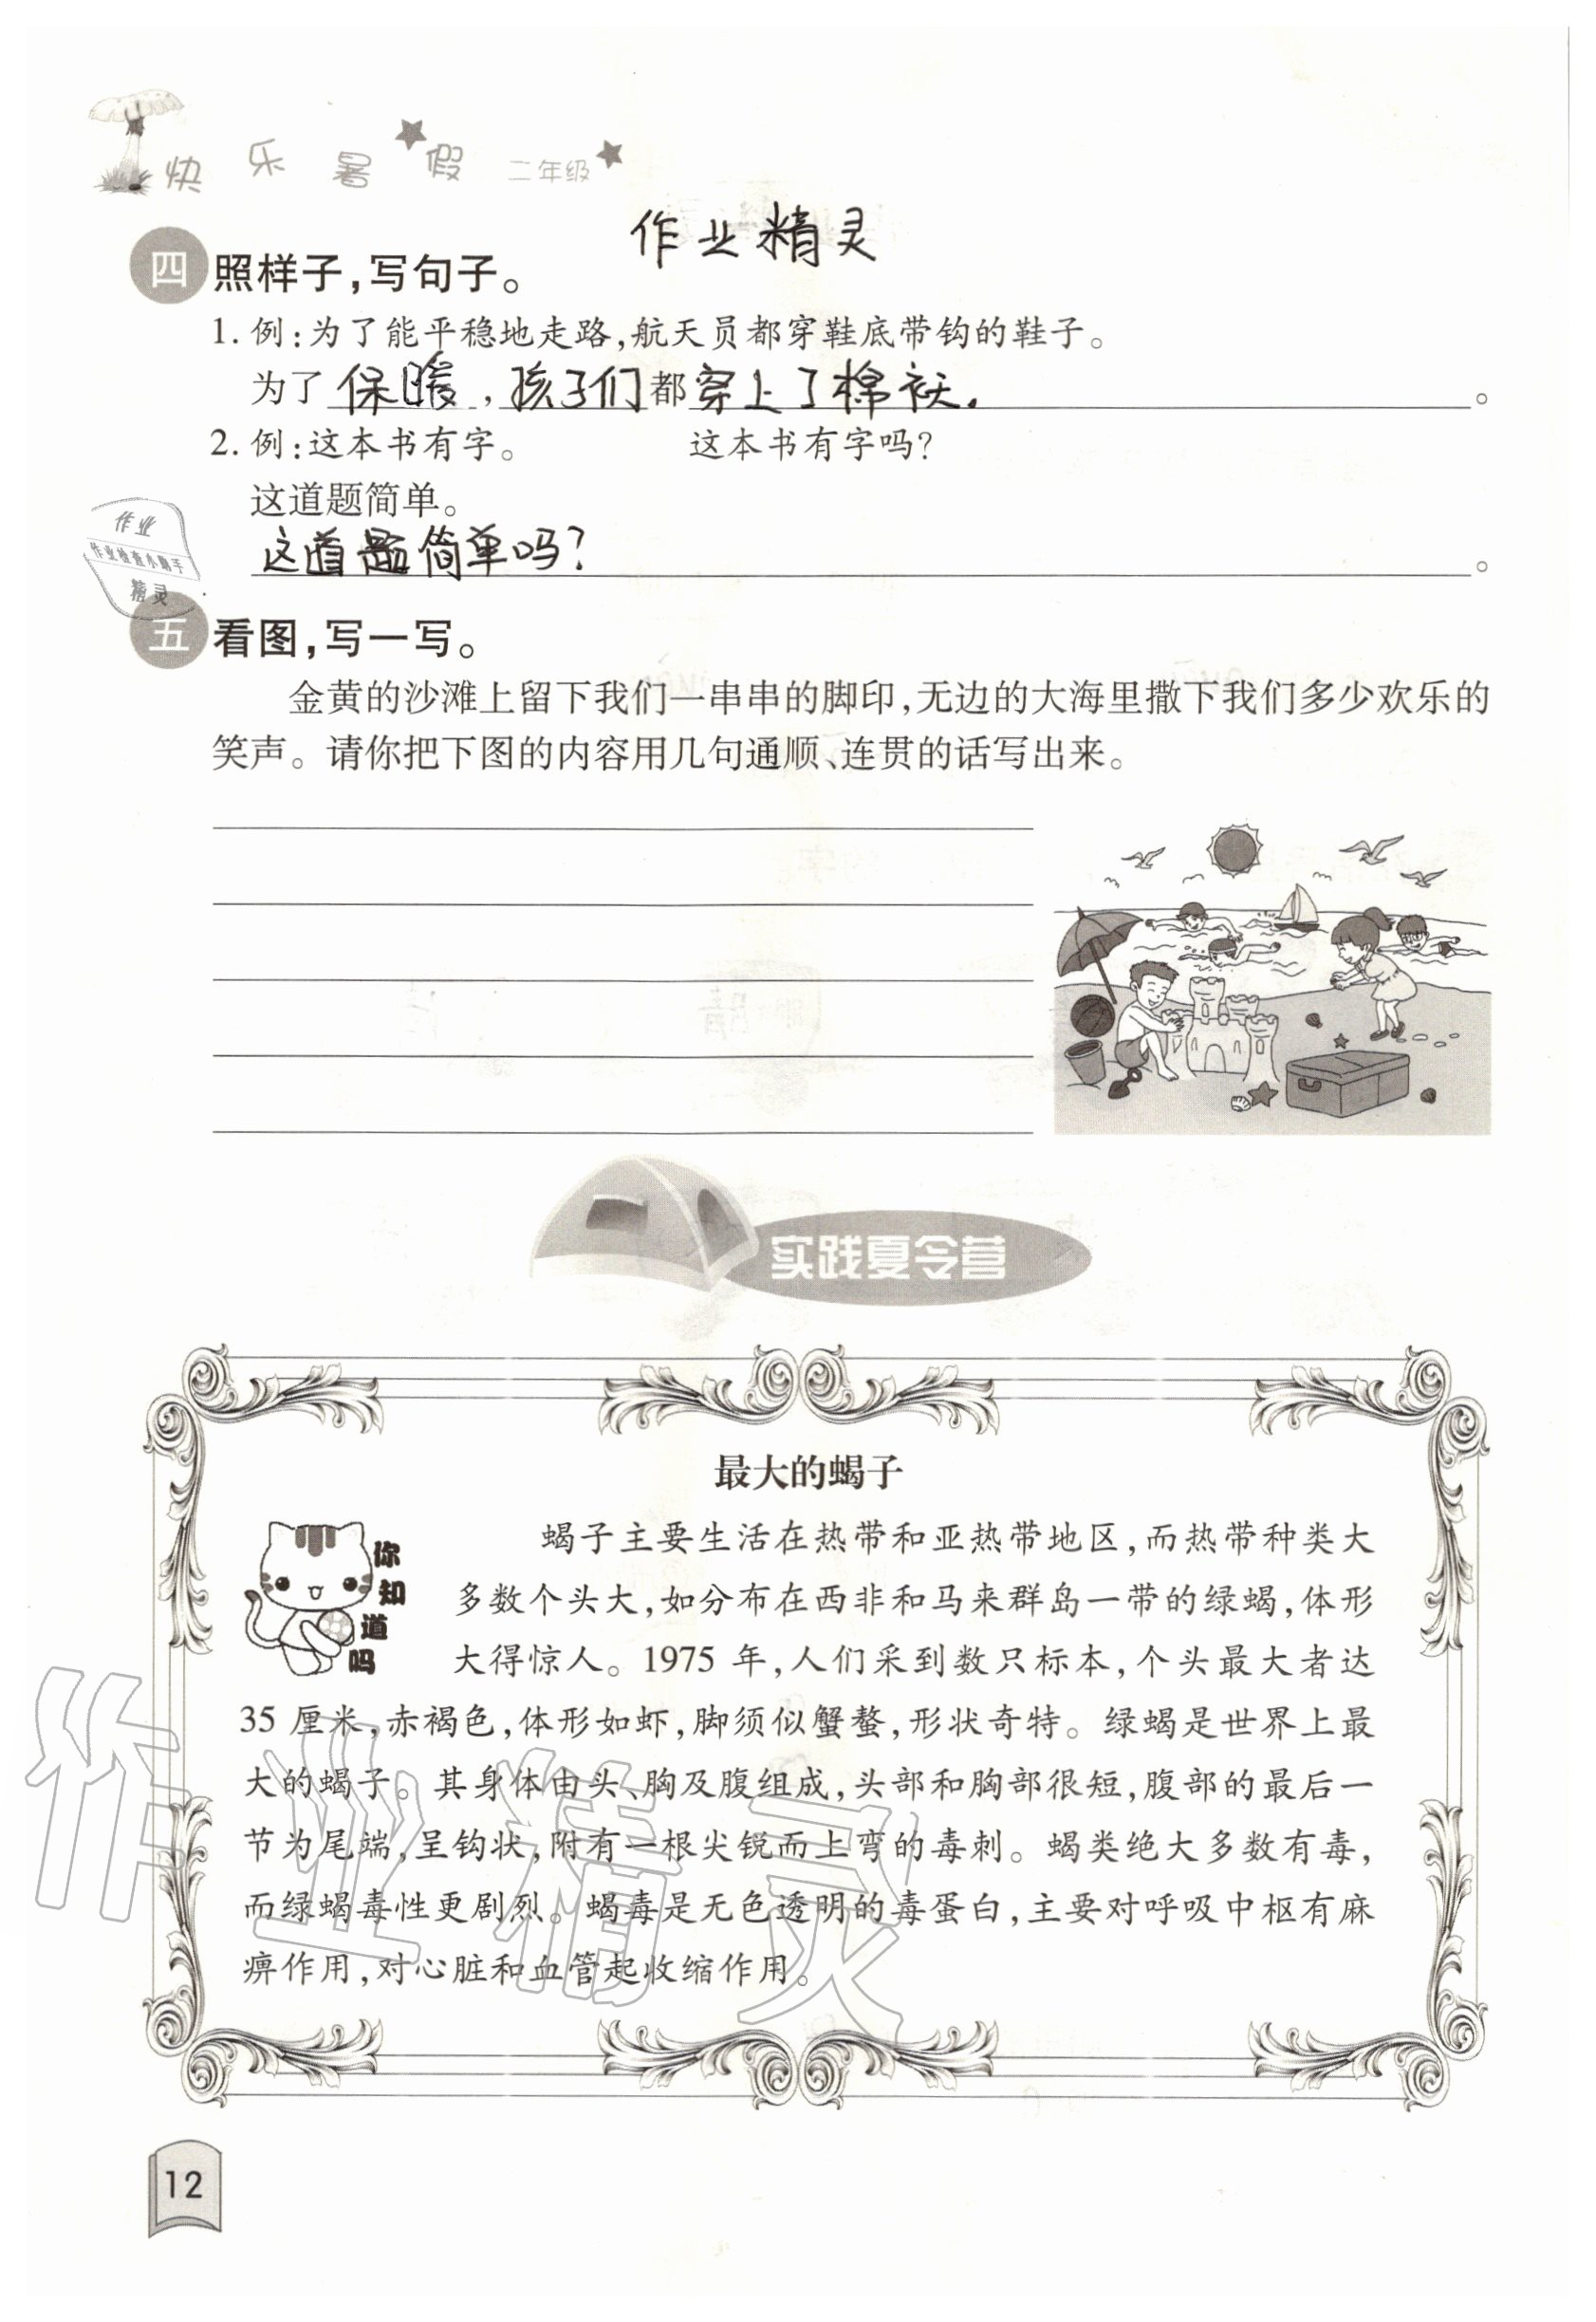 快乐暑假 二年级
作业精灵
四 照样子,写句子。
1. 例:为了能平稳地走路,航天员都穿鞋底带钩的鞋子。
为了保暖,孩子们都穿上了棉袄.。
2. 例:这本书有字。 这本书有字吗?
这道题简单。
这道题简单吗?。
作业
作业检查小助手
精灵
五 看图,写一写。
金黄的沙滩上留下我们一串串的脚印,无边的大海里撒下我们多少欢乐的
笑声。请你把下图的内容用几句通顺、连贯的话写出来。
实践夏令营
最大的蝎子
你知道吗
蝎子主要生活在热带和亚热带地区,而热带种类大
多数个头大,如分布在西非和马来群岛一带的绿蝎,体形
大得惊人。1975 年,人们采到数只标本,个头最大者达
35 厘米,赤褐色,体形如虾,脚须似蟹螯,形状奇特。绿蝎是世界上最
大的蝎子。其身体由头、胸及腹组成,头部和胸部很短,腹部的最后一
节为尾端,呈钩状,附有一根尖锐而上弯的毒刺。蝎类绝大多数有毒,
而绿蝎毒性更剧烈。蝎毒是无色透明的毒蛋白,主要对呼吸中枢有麻
痹作用,对心脏和血管起收缩作用。
作业精灵
12